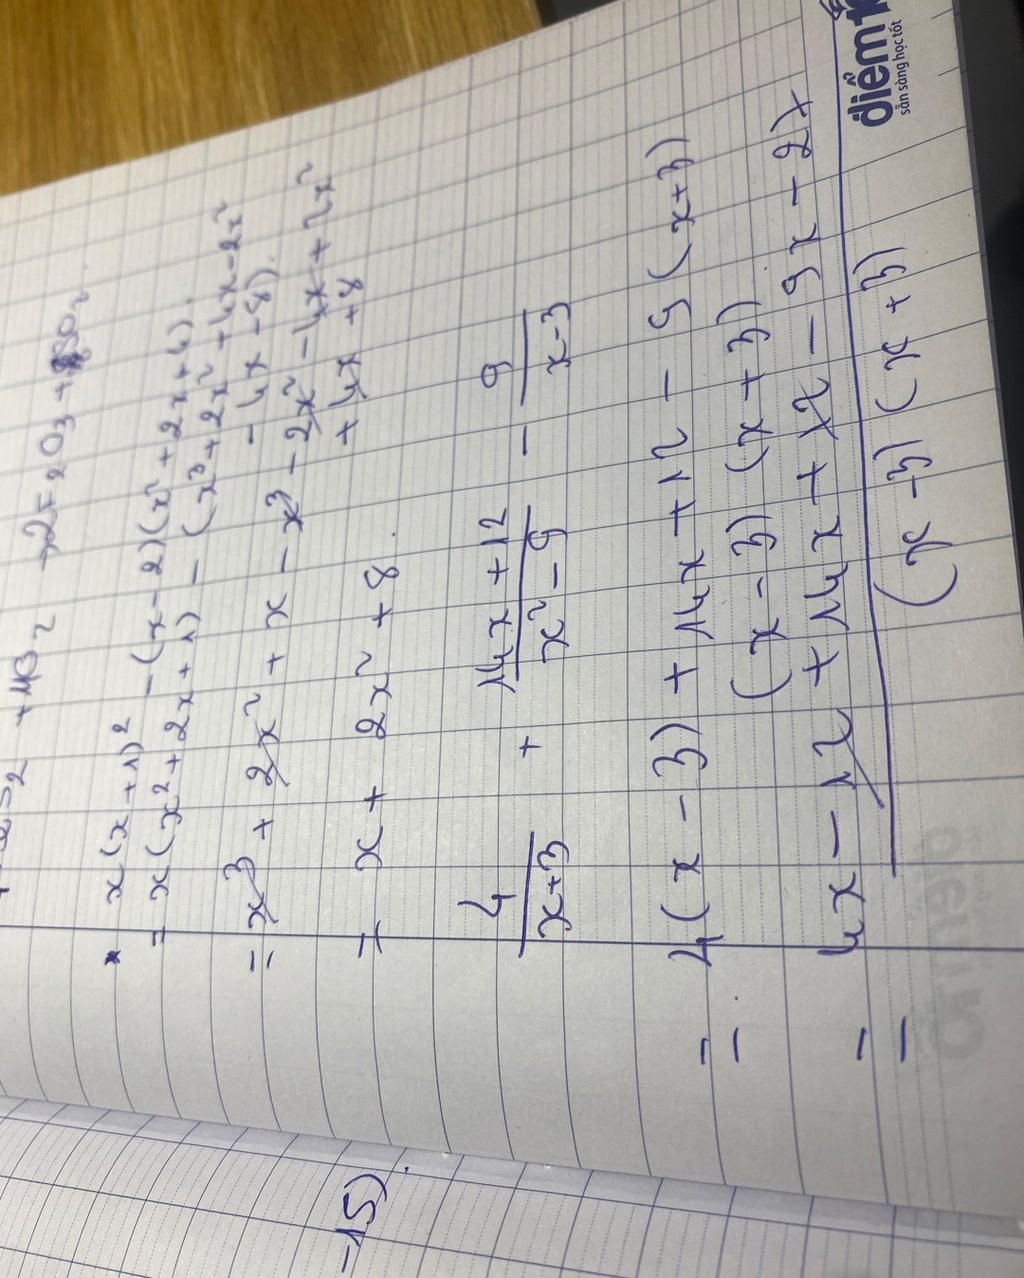 → 2F₂O₃ + 8SO₂
* x(x+1)² - (x-2)(x²+2x+4).
= x(x²+2x+1) - (x³+2x²+4x-2x²
- 4x - 8).
= x³ + 2x² + x - x³ - 2x² - 4x + 2x²
+ 4x + 8
= x + 2x² + 8.
4/(x+3) + (14x+12)/(x²-9) - 9/(x-3)
= 4(x-3) + 14x + 12 - 9(x+3)
(x-3)(x+3)
= 4x - 12 + 14x + 12 - 9x - 27
(x-3)(x+3)
-15).
điểm
sẵn sàng học tốt